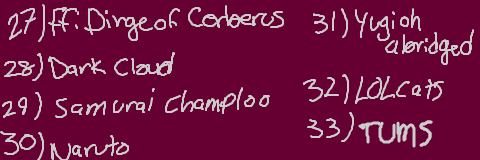 27) ff: Dirge of Cerberus
28) Dark Cloud
29) Samurai Champloo
30) Naruto
31) Yugioh
abridged
32) LOLcats
33) TUMS